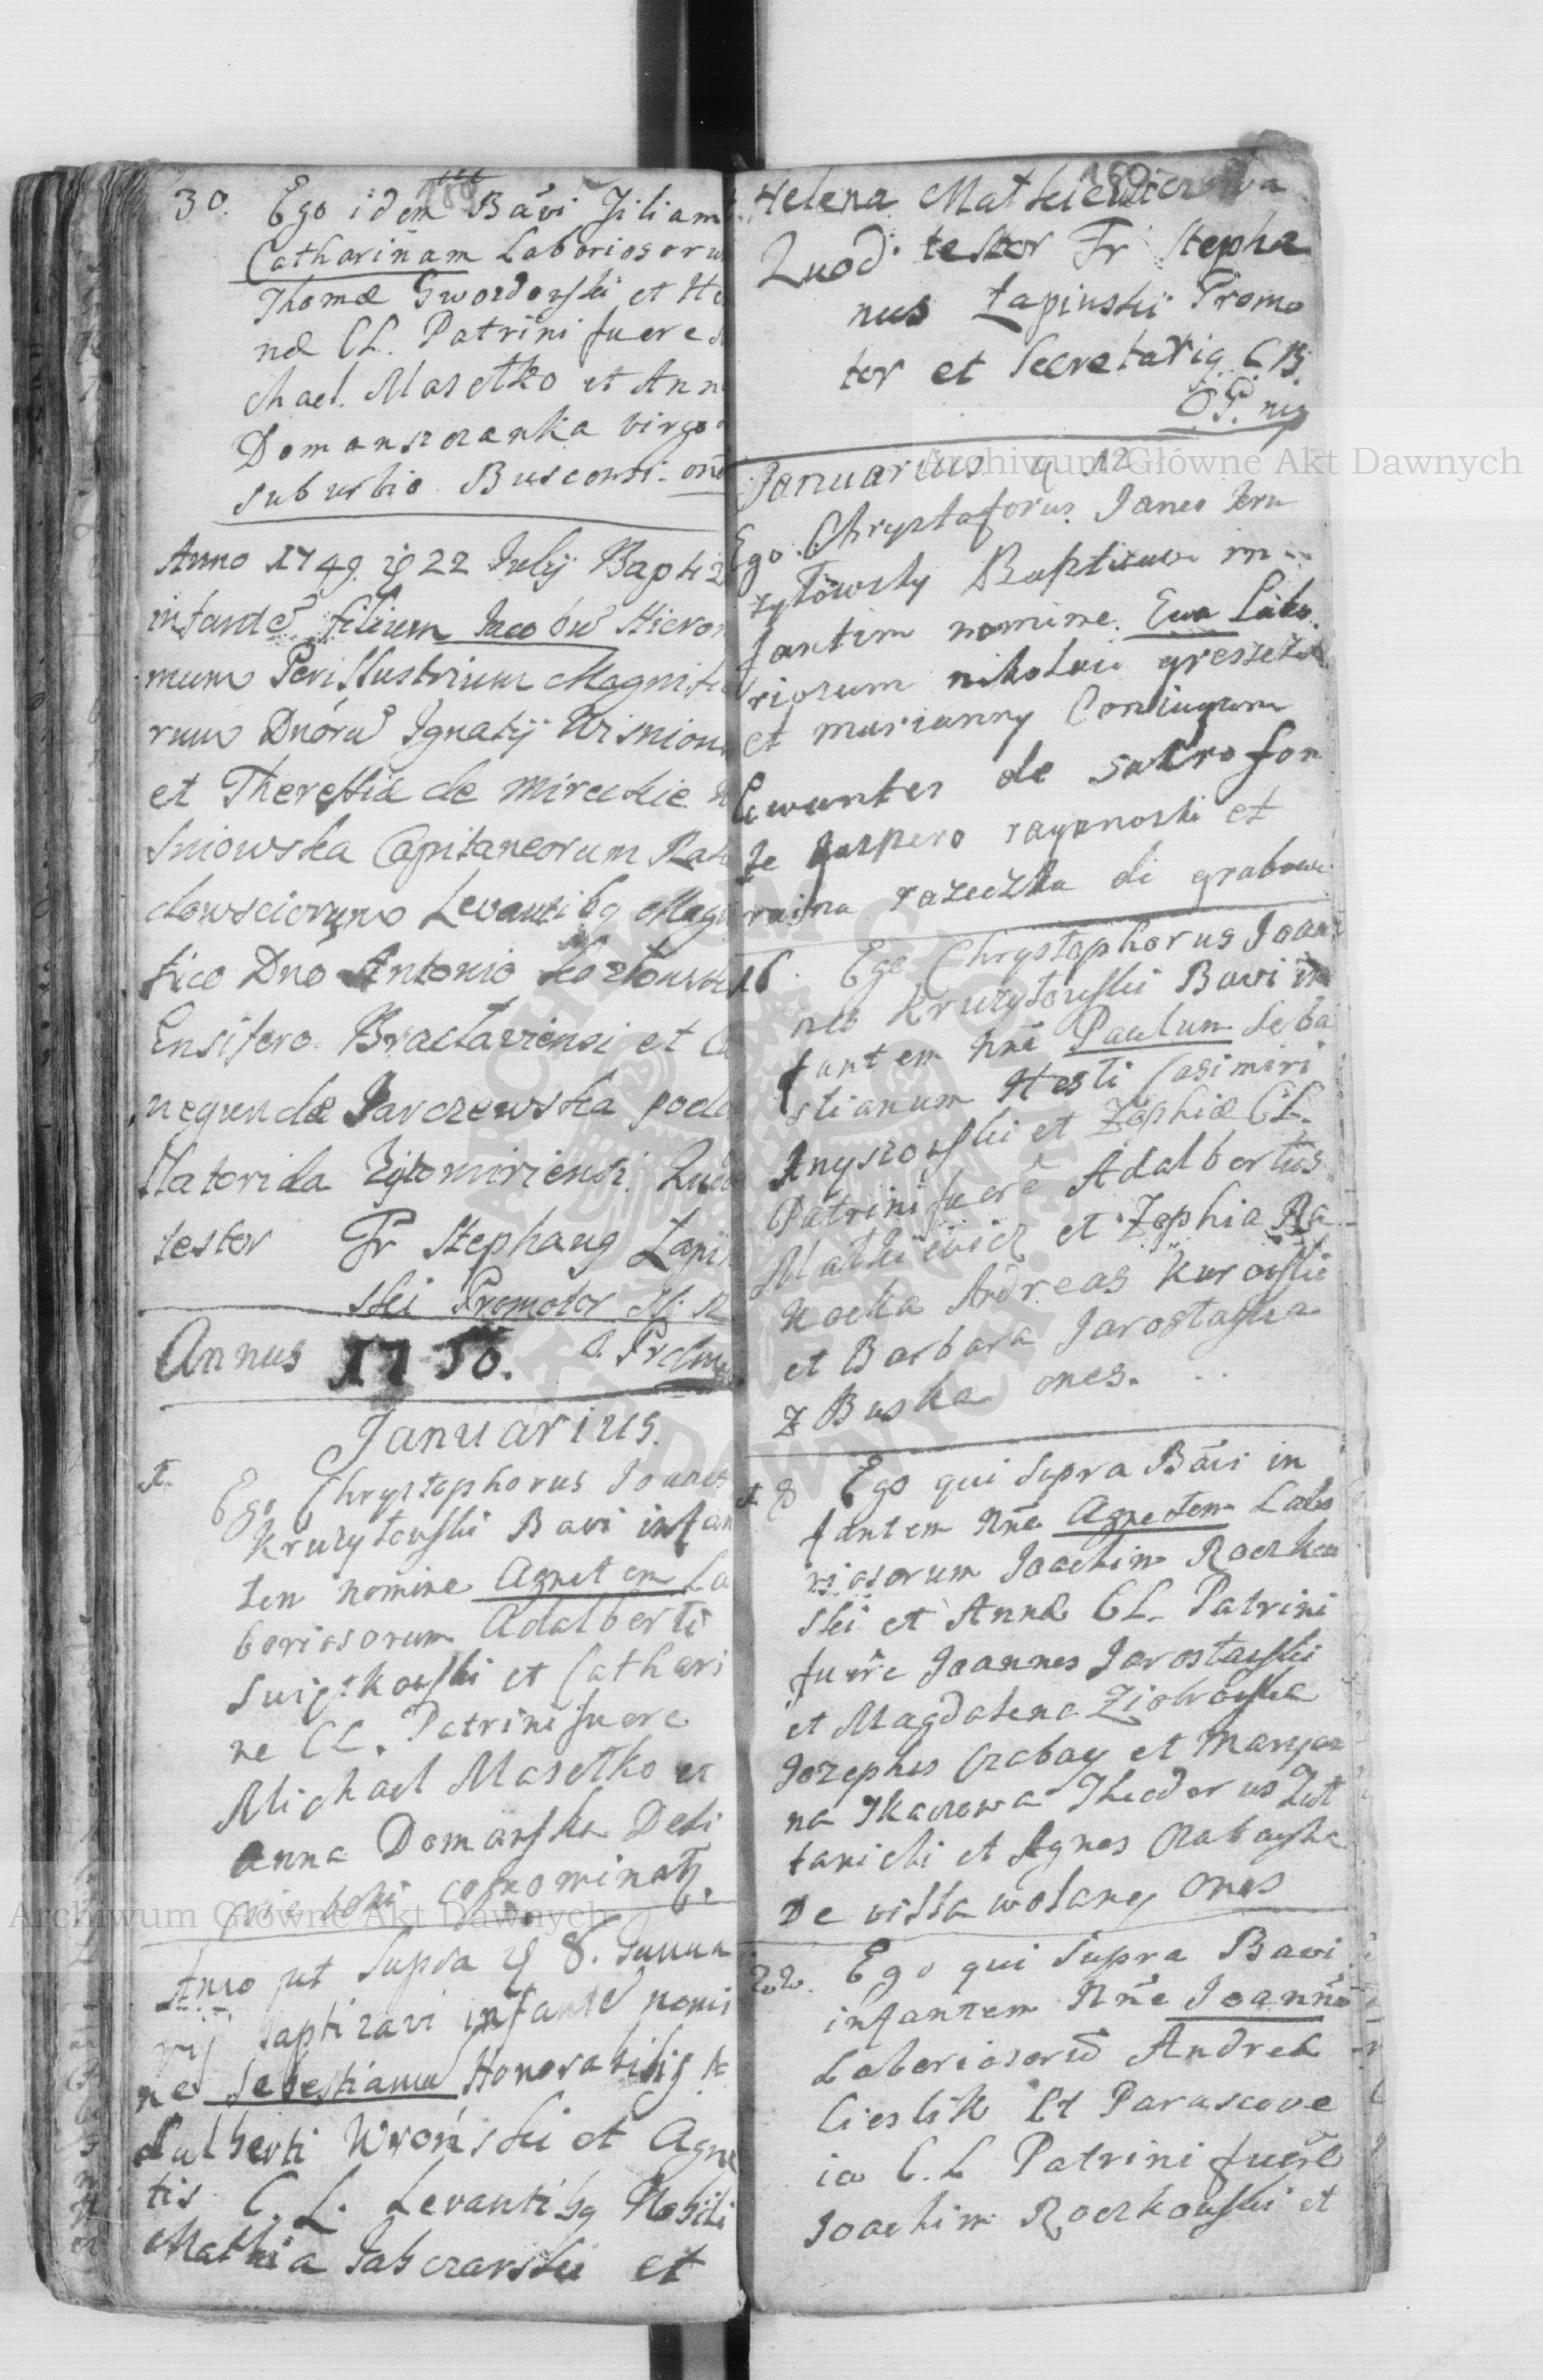 30. Ego idem Bavi Filiam
Catharinam Laboriosoru
Thomæ Gwozdowski et He
næ CL. Patrini fuere
chael Masetko et Ann
Domanszczanka virgo
suburbio Buscensi. ones
Anno 1749. 22 Julij Baptiz
infante filium Jacobu Hieron
mum Perillustrium Magnifi
rum Dnoru Ignatij Wisniow
et Theressiæ de Mireckie
sniowska Capitaneorum
dowsciorum Levantibq Magn
fico Dno Antonio Kozłowski
Ensifero Bractaviensi et Cu
negundæ Jarczewska podc
Zytomiriensi. Quod
testor Fr Stephanq Łapin
ski Promotor
Annus 1750.
Januarius.
Ego Chrystophorus Joanes
Kruzytowski Bavi infan
tem nomine Agnetem La
boriosorum Adalberti
et Cathari
ne CL. Patrini fuere
Michael Masetko et
Anna Domańska
cognominatq.
Anno ut Supra 8. Janua
rij baptizavi infante nomi
ne Sebestianu Honorabilis
dalberti Wroński et Agne
tis C. L. Levantibq Nobili
Mathia Jabczarski et
189
Helena Matkiewiczowa
Quod testor Fr Stepha
nus Łapinski Promo
tor et Secretariq C B.
O P. mp
Januarius 12
Ego Chrystoforus Janes Kru
zytowsky Baptizavi in
fantim nomine Ewa Labo
riozum nikolai
et marianny Coniugum
Lewantes de sakro fon
te kaspero et
di grabowi
16. Ego Chrystophorus Joan
nes Kruzytowski Bavi in
fantem nne Paulum Seba
stianum Hesti Casimiri
et Zophiæ CL.
Patrini fuere Adalbertus
Matkiewicz et Zophia Ra
kocka Andreas Kurowski
et Barbara Jarosławska
z Buska ones.
18 Ego qui supra Bavi in
fantem Nne Agnetem Labo
riosorum Joachim Roczkow
ski et Annæ CL. Patrini
fuere Joannes Jarosławski
et Magdalena Ziobrowska
Jozephus Czabay et Maryan
na Tkaczowa Theodorus
et Agnes Czabayka
De villa wolany ones
22. Ego qui supra Bavi
infantem Nne Joanne
Laboriosoru Andreæ
Cieslik et Parascove
iæ C. L Patrini fuere
Joachim Roczkowski et
Archiwum Główne Akt Dawnych
Archiwum Główne Akt Dawnych